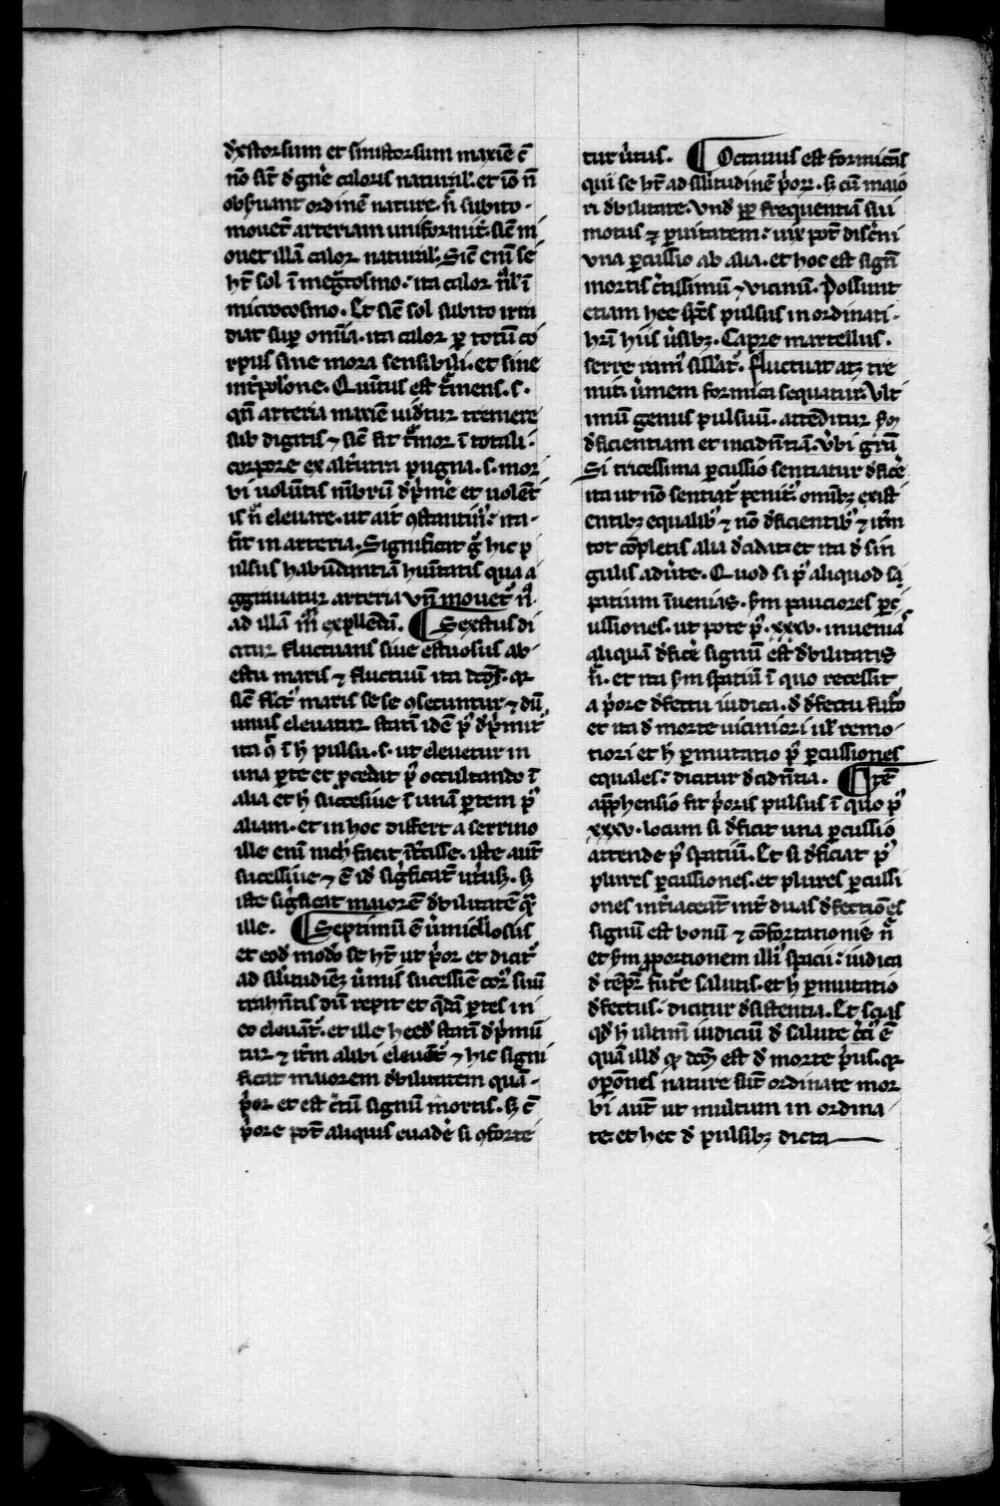 dextorsum et sinistorsum maxīe ē
nō sūt d' gn̄e caloris natural'. et iō n̄
obs̄uant ordinē nature. n̄ subito.
mouet' arteriam uniformit'. sic̄ m
ouet illā calor natural'. Sic̄ enī se
ht̄ sol ī meg̃cosmo. ita calor n̄l' ī
microcosmo. Et sic̄ sol subito irra
diat suꝑ om̄ia. ita calor ꝑ totū co
rpus sine mora sensibili. et sine
int'pol'one. Quītus est t'mens. s.
qn̄ arteria maxīe uidetur tremere
sub digitis ⁊ sic̄ fit t'mor ī totali.
corpore ex alt'utra pugna. s. mor
bi uolētis mēbrū dep'me' et uolēt
is n̄ eleuare. ut ait ꝯstantin'. ita.
fit in arteria. Significat g̊ hic p
ulsus habūdantiā hūitatis qua a
ggrauatur arteria un̄ mouet' n̄
ad illā m̄ expellēdā. ¶ Sextus di
citur fluctuans siue estuosus ab.
estu maris ⁊ fluctuū ita dc̄us. qr
sic̄ fluct' maris se se ꝯsecuntur ⁊ dū
unus eleuatur statī idē p' dep'mit'
ita q̊ ī h̄ pulsu. s. ut eleuetur in
una ꝑte et ꝓcedat p' occultando ī
alia et h̄ succesiue ī unā ꝑtem p'
aliam. et in hoc differt a serrino
ille enī nich' facit īt'cisse. iste aūt
sucessiue ⁊ ē id' sig'ficat' ut'usq. s;
iste sig'ficat maiorē debilitatē q̃
ille. ¶ Septimū ē u'miculosus
et eod' modo se ht̄ ut p'or et dicit'
ad sil'itudiēz u'mis sucessiue cor' suū
trah̄tis dū repit et q'dā ꝑtes in
eo eleuāt'. et ille heed' statī dep'mū
tur ⁊ it'm alibi eleuāt' ⁊ hic signi
ficat maiorem debilitatem quā.
p'or et est c'tū signū mortis. s; ē
p'ore pōt aliquis euade' si ꝯforte
tur u'tus. ¶ Octauus est formicās
qui se ht̄ ad sil'itudinē p'or. s; cū maio
ri debilitate. Vnd' ꝓp̄ frequentiā sui
motus ⁊ ꝑuitatem. uix pōt disc'ni
una ꝑcussio ab alia. et hoc est signū
mortis c'tissimū ⁊ uicinū. Possunt
etiam hee sp̄es pulsus in ordinati.
h'ri hiis u'sib;. Capre martellus.
serre ram' sill'at'. fluctuat atq; tre
mit. u'mem formica sequatur. Vlti
mum genus pulsuū. attēditur s'm
deficientiam et incidentiā. Vbi g'ra
Si tricessima ꝑcussio sentiatur defice'
ita ut nō sentiat' penit'. omīb; exist
entib; equalib' ⁊ nō deficientib' ⁊ it'm
tot cōpletis alia decidat et ita d' sin
gulis adu'te. Quod si p' aliquod sa
patium īuenias. s'm pauciores ꝑc
ussiones. ut pote p'. xxxv. inuenias
aliquā defice' signū est debilitatis
n̄. et ita s'm spatiū ī quo recessit
a p'ore defectu iudica. d' defectu futō
et ita d' morte uiciniori ul' remo.
tiori et h̄ ꝑmutatio p' ꝑcussiones
equales. dicitur decidentia. ¶ Itē
app'hensio fit p'oris pulsus ī quo p'
xxxv. locum si deficit una ꝑcussio
attende p' spatiū. Et si deficiat p'
plures ꝑcussiones. et plures ꝑcussi
ones int'iaceāt int' duas defectiōes
signū est bonū ⁊ cōfortationis n̄
et s'm ꝓportionem illi' spacii. iudica
d' tēp'e future salutis. et h̄ ꝑmutatio
defectus. dicitur desistentia. Et scias
qd' h̄ ultimū iudiciū d' salute c'ti' ē
quā illd' qd' dc̄m est d' morte p'us. qr
oꝑōnes nature sūt ordinate mor
bi aūt ut multum in ordina.
te. et hec d' pulsib; dicta